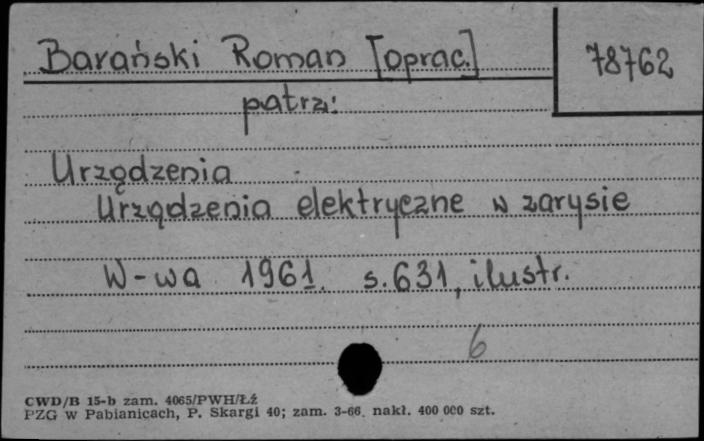 Barański Roman [oprac.]
78762
patrz:
Urządzenia
Urządzenia elektryczne w zarysie
W-wa 1961. s. 631, ilustr.
6
CWD/B 15-b zam. 4065/PWH/Łź
PZG w Pabianicach, P. Skargi 40; zam. 3-66. nakł. 400 000 szt.